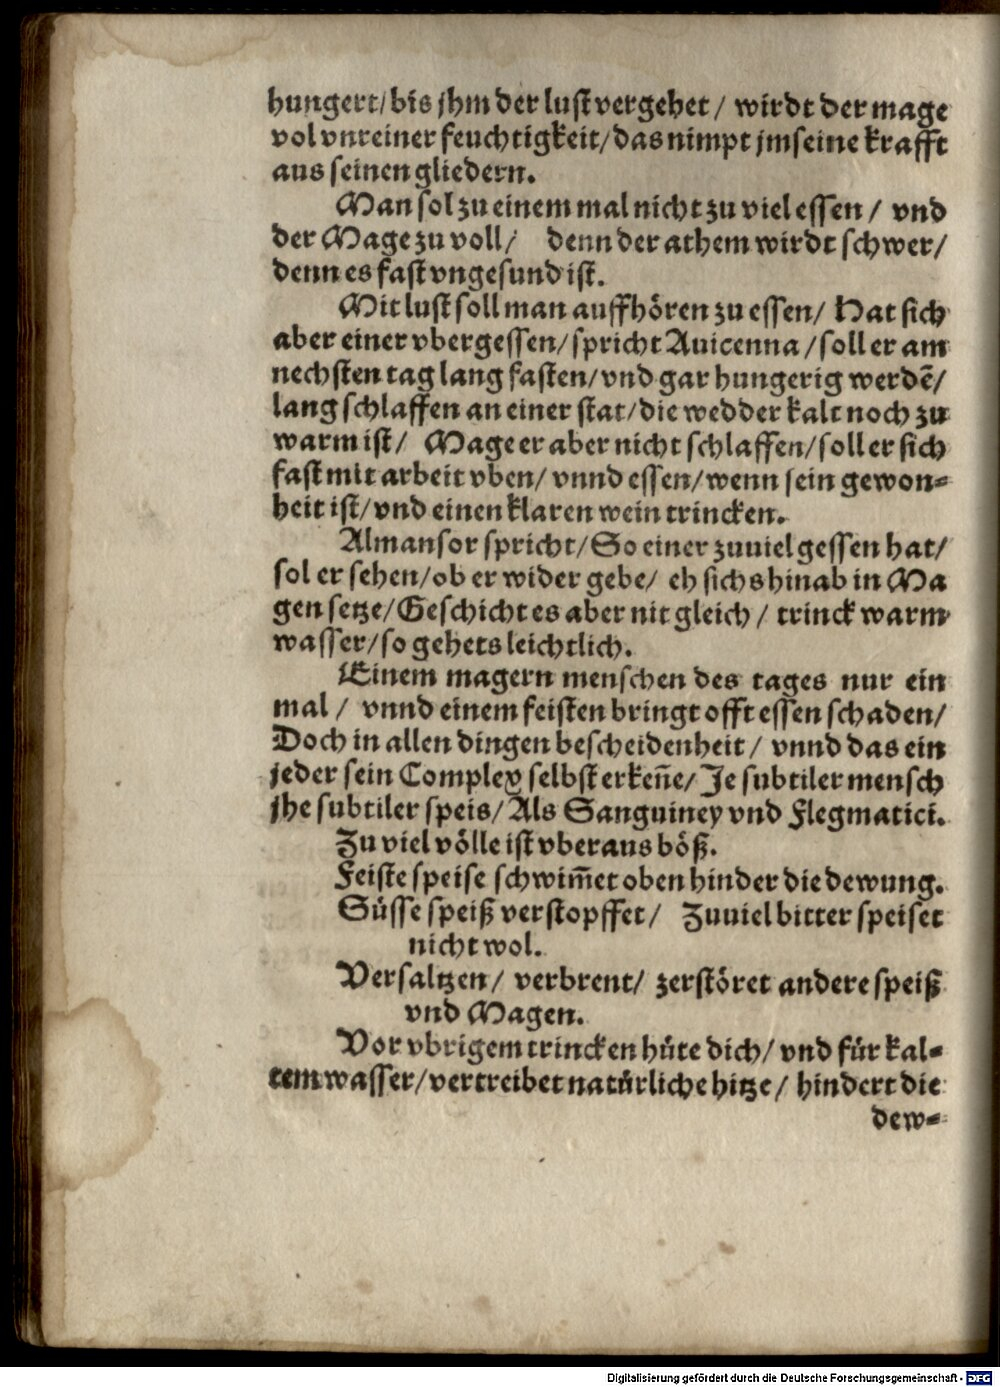 hungert/ bis jhm der lust vergehet / wirdt der mage
vol vnreiner feuchtigkeit/ das nimpt jm seine krafft
aus seinen gliedern.
Man sol zu einem mal nicht zu viel essen / vnd
der Mage zu voll/ denn der athem wirdt schwer/
denn es fast vngesund ist.
Mit lust soll man auffhören zu essen/ Hat sich
aber einer vbergessen/ spricht Auicenna / soll er am
nechsten tag lang fasten/ vnd gar hungerig werdē/
lang schlaffen an einer stat/ die wedder kalt noch zu
warm ist/ Mage er aber nicht schlaffen/ soll er sich
fast mit arbeit vben/ vnnd essen/ wenn sein gewon-
heit ist/ vnd einen klaren wein trincken.
Almansor spricht/ So einer zuuiel gessen hat/
sol er sehen/ ob er wider gebe/ eh sichs hinab in Ma
gen setze/ Geschicht es aber nit gleich / trinck warm
wasser/ so gehets leichtlich.
Einem magern menschen des tages nur ein
mal / vnnd einem feisten bringt offt essen schaden/
Doch in allen dingen bescheidenheit / vnnd das ein
jeder sein Complex selbst erkeñe/ Je subtiler mensch
jhe subtiler speis/ Als Sanguiney vnd Flegmatici.
Zu viel völle ist vberaus böß.
Feiste speise schwim̄et oben hinder die dewung.
Süsse speiß verstopffet/ Zuuiel bitter speiset
nicht wol.
Versaltzen/ verbrent/ zerstöret andere speiß
vnd Magen.
Vor vbrigem trincken hüte dich/ vnd für kal-
tem wasser/ vertreibet natürliche hitze/ hindert die
dew-
Digitalisierung gefördert durch die Deutsche Forschungsgemeinschaft - DFG